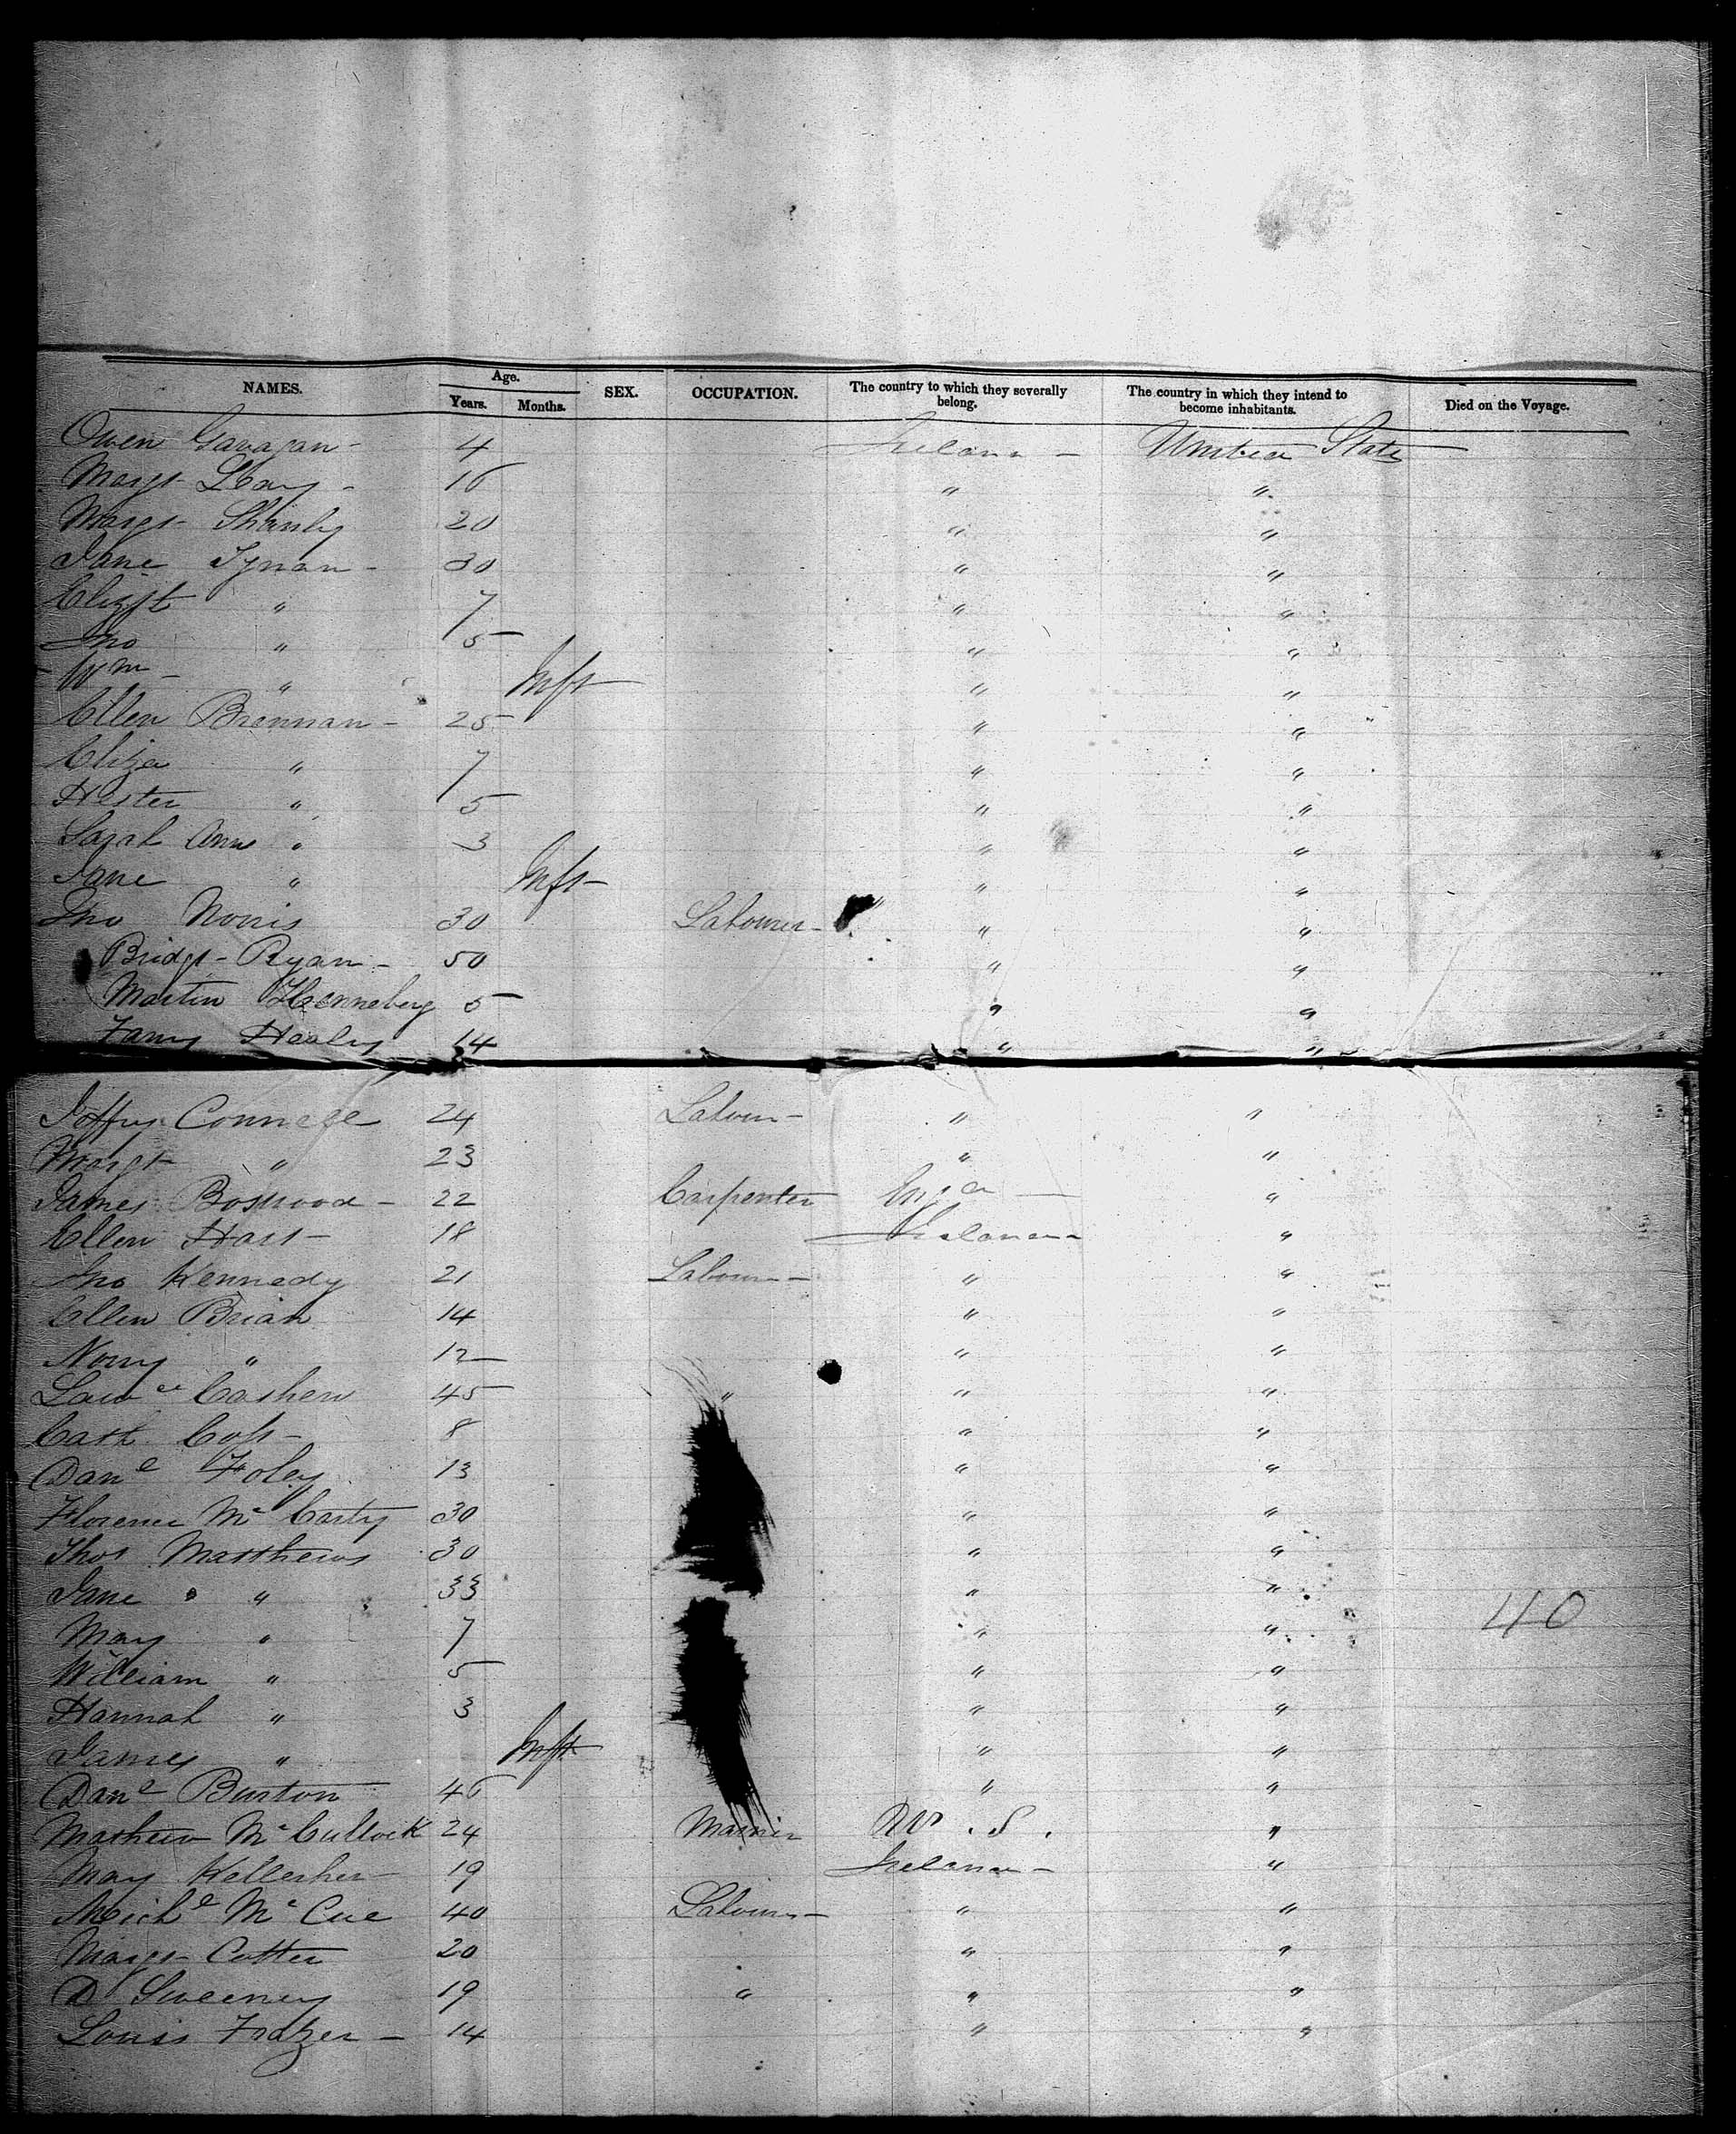 NAMES. Age. Years. Months. SEX. OCCUPATION. The country to which they severally belong. The country in which they intend to become inhabitants. Died on the Voyage.
Owen Gavagan - 4 Ireland - United States
Margt Leary - 16 " "
Margt Shanly 20 " "
Jane Tynan - 30 " "
Elizt " 7 " "
Jno " 5 " "
Wm " Inft " "
Ellen Brennan - 25 " "
Eliza " 7 " "
Hester " 5 " "
Sarah Ann " 3 " "
Jane " Inft " "
Jno Norris 30 Labourer " "
Bridgt Ryan - 50 " "
Martin Henneberg 5 " "
Fanny Healy 14 " "
Joffry 24 Labour - " "
Margt " 23 " "
James Boswood - 22 Carpenter "
Ellen Hart - 18 Ireland "
Jno Kennedy 21 Labour - " "
Ellen Brian 14 " "
Nony " 12 " "
Lawce Cashen 45 " " "
Cath 8 " "
Danl Foley 13 " "
Florence Mc Carty 30 " "
Thos Matthews 30 " "
Jane " 33 " "
Mary " 7 " " 40
William " 5 " "
Hannah " 3 " "
James " Inft " "
Danl Burton 46 " "
Mathew Mc Cullock 24 U.S. "
Mary Kellerher 19 Ireland - "
Michl Mc Cue 40 Labour - " "
Margt Cotter 20 " "
D Sweeney 19 " " "
Louis Frazer - 14 " "